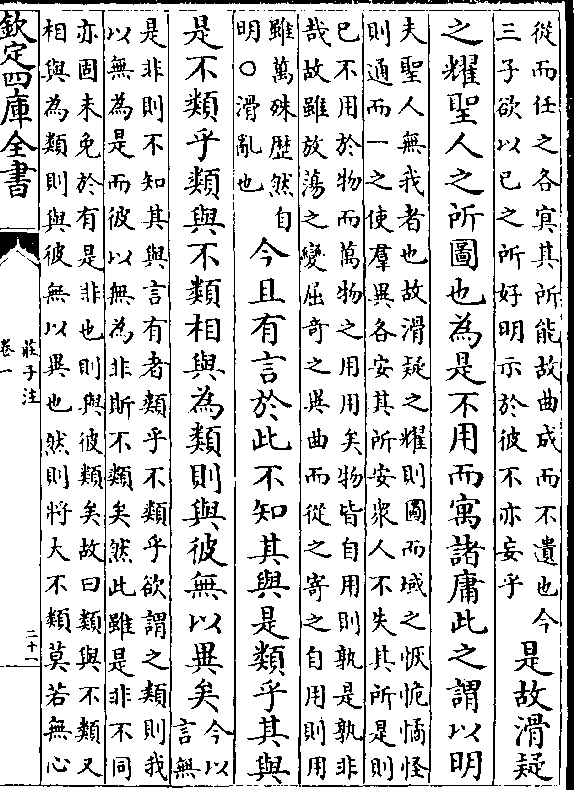 從而任之各冥其所能故曲成而不遺也今
三子欲以已之所好明示於彼不亦妄乎
是故滑疑
之耀聖人之所圖也為是不用而寓諸庸此之謂以明
夫聖人無我者也故滑疑之耀則圖而域之恢恑憰怪
則通而一之使羣異各安其所安衆人不失其所是則
已不用於物而萬物之用用矣物皆自用則孰是孰非
哉故雖放蕩之變屈奇之異曲而從之寄之自用則用
雖萬殊歴然自
明○滑亂也
今且有言於此不知其與是類乎其與
是不類乎類與不類相與為類則與彼無以異矣
今以
言無
是非則不知其與言有者類乎不類乎欲謂之類則我
以無為是而彼以無為非斯不類矣然此雖是非不同
亦固未免於有是非也則與彼類矣故曰類與不類又
相與為類則與彼無以異也然則將大不類莫若無心
欽定四庫全書
莊子注
卷一
二十一